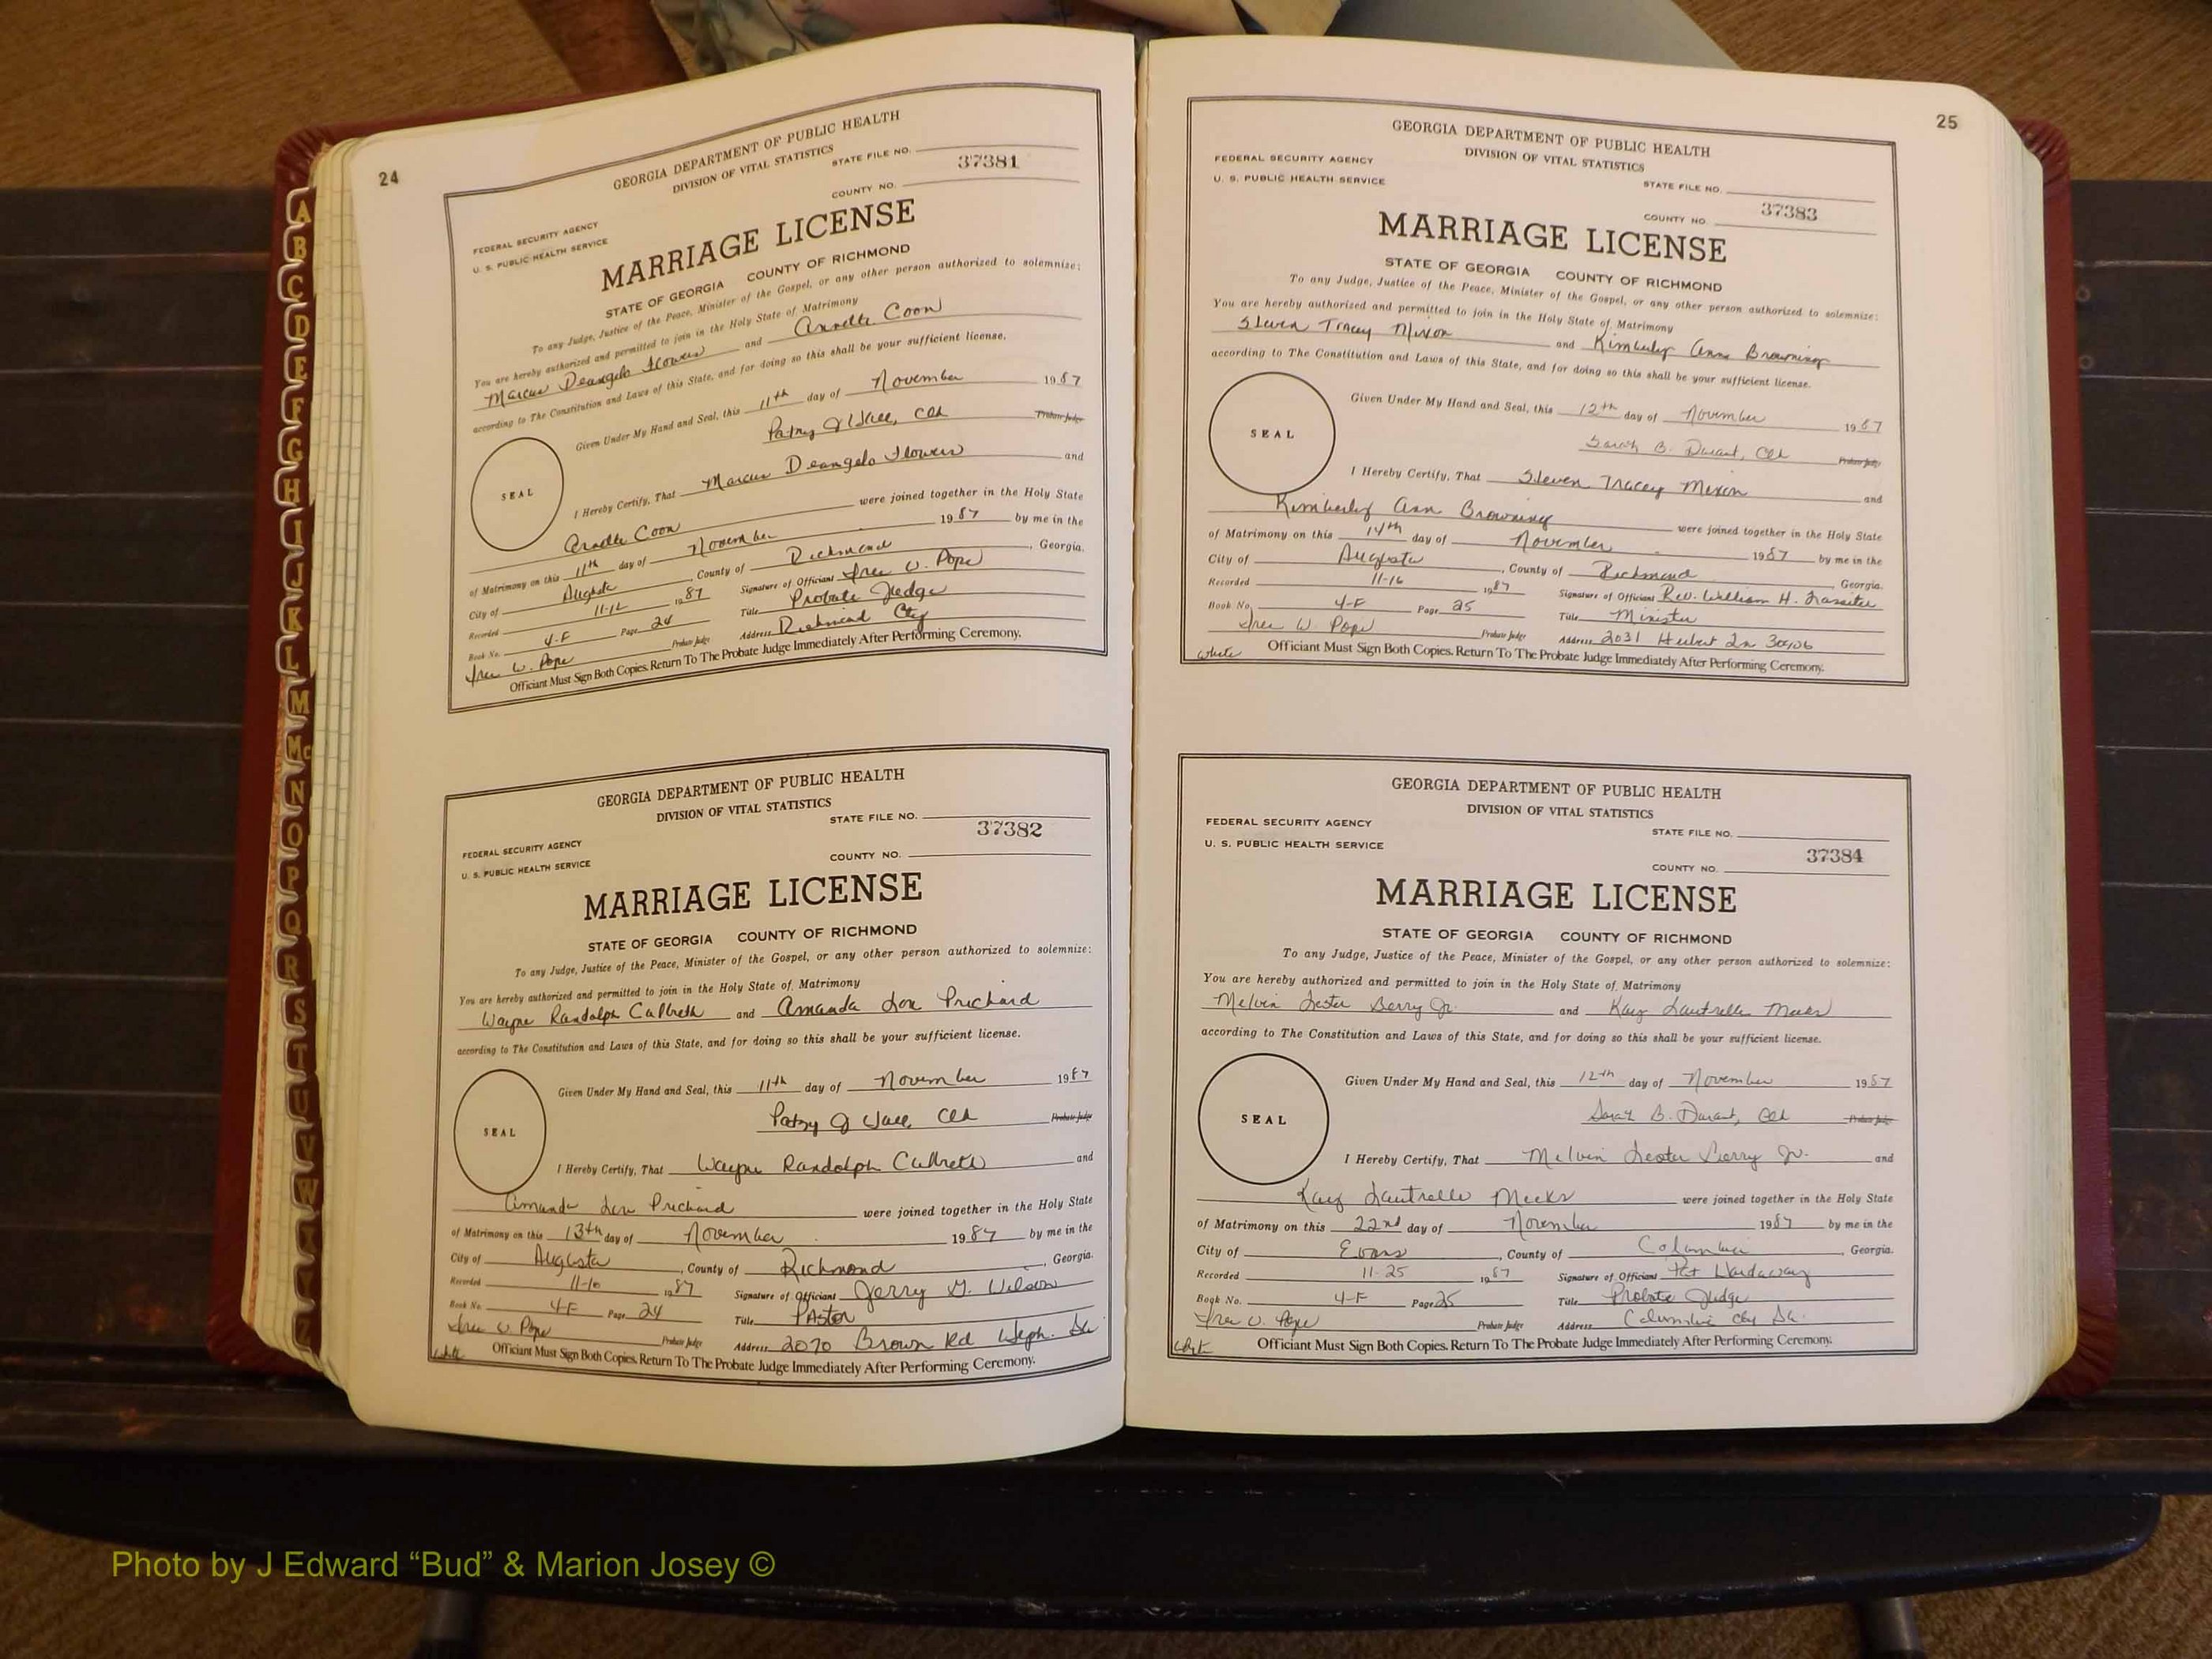 24
GEORGIA DEPARTMENT OF PUBLIC HEALTH
DIVISION OF VITAL STATISTICS
STATE FILE NO.
37381
COUNTY NO.
FEDERAL SECURITY AGENCY
U. S. PUBLIC HEALTH SERVICE
MARRIAGE LICENSE
STATE OF GEORGIA COUNTY OF RICHMOND
To any Judge, Justice of the Peace, Minister of the Gospel, or any other person authorized to solemnize:
You are hereby authorized and permitted to join in the Holy State of Matrimony
Marcus Deangelo Flowers and Coon
according to The Constitution and Laws of this State, and for doing so this shall be your sufficient license.
Given Under My Hand and Seal, this 11th day of November 1987
Patsy J Wall, Clk Probate Judge
SEAL
I Hereby Certify, That Marcus Deangelo Flowers and
Coon were joined together in the Holy State
of Matrimony on this 11th day of November 1987 by me in the
City of Augusta, County of Richmond, Georgia.
Recorded 11-12 1987 Signature of Officiant W. Pope
Book No. 4-F Page 24 Title Probate Judge
W. Pope Probate Judge Address Richmond Cty
Officiant Must Sign Both Copies. Return To The Probate Judge Immediately After Performing Ceremony.
GEORGIA DEPARTMENT OF PUBLIC HEALTH
DIVISION OF VITAL STATISTICS
STATE FILE NO.
37382
FEDERAL SECURITY AGENCY
COUNTY NO.
U. S. PUBLIC HEALTH SERVICE
MARRIAGE LICENSE
STATE OF GEORGIA COUNTY OF RICHMOND
To any Judge, Justice of the Peace, Minister of the Gospel, or any other person authorized to solemnize:
You are hereby authorized and permitted to join in the Holy State of Matrimony
Wayne Randolph Culbreth and Amanda Lou Prichard
according to The Constitution and Laws of this State, and for doing so this shall be your sufficient license.
Given Under My Hand and Seal, this 11th day of November 1987
Patsy J Wall, Clk Probate Judge
SEAL
I Hereby Certify, That Wayne Randolph Culbreth and
Amanda Lou Prichard were joined together in the Holy State
of Matrimony on this 13th day of November 1987 by me in the
City of Augusta, County of Richmond, Georgia.
Recorded 11-16 1987 Signature of Officiant Jerry G. Wilson
Book No. 4-F Page 24 Title Pastor
W. Pope Probate Judge Address 2070 Brown Rd Heph. Ga
White Officiant Must Sign Both Copies. Return To The Probate Judge Immediately After Performing Ceremony.
25
GEORGIA DEPARTMENT OF PUBLIC HEALTH
DIVISION OF VITAL STATISTICS
FEDERAL SECURITY AGENCY
U. S. PUBLIC HEALTH SERVICE
STATE FILE NO.
37383
COUNTY NO.
MARRIAGE LICENSE
STATE OF GEORGIA COUNTY OF RICHMOND
To any Judge, Justice of the Peace, Minister of the Gospel, or any other person authorized to solemnize:
You are hereby authorized and permitted to join in the Holy State of Matrimony
Steven Tracey Mixon and Kimberly Ann Browning
according to The Constitution and Laws of this State, and for doing so this shall be your sufficient license.
Given Under My Hand and Seal, this 12th day of November 1987
Sarah B. Durant, Clk Probate Judge
SEAL
I Hereby Certify, That Steven Tracey Mixon and
Kimberly Ann Browning were joined together in the Holy State
of Matrimony on this 14th day of November 1987 by me in the
City of Augusta, County of Richmond, Georgia.
Recorded 11-16 1987 Signature of Officiant Rev. William H. Lassiter
Book No. 4-F Page 25 Title Minister
W. Pope Probate Judge Address 2031 Hubert Ln 30906
White Officiant Must Sign Both Copies. Return To The Probate Judge Immediately After Performing Ceremony.
GEORGIA DEPARTMENT OF PUBLIC HEALTH
DIVISION OF VITAL STATISTICS
FEDERAL SECURITY AGENCY
STATE FILE NO.
U. S. PUBLIC HEALTH SERVICE
37384
COUNTY NO.
MARRIAGE LICENSE
STATE OF GEORGIA COUNTY OF RICHMOND
To any Judge, Justice of the Peace, Minister of the Gospel, or any other person authorized to solemnize:
You are hereby authorized and permitted to join in the Holy State of Matrimony
Melvin Lester Berry Jr. and Kay Lautrelle Meeks
according to The Constitution and Laws of this State, and for doing so this shall be your sufficient license.
Given Under My Hand and Seal, this 12th day of November 1987
Sarah B. Durant, Clk Probate Judge
SEAL
I Hereby Certify, That Melvin Lester Berry Jr. and
Kay Lautrelle Meeks were joined together in the Holy State
of Matrimony on this 22nd day of November 1987 by me in the
City of Evans, County of Columbia, Georgia.
Recorded 11-25 1987 Signature of Officiant Pat Hardaway
Book No. 4-F Page 25 Title Probate Judge
W. Pope Probate Judge Address Columbia Cty Ga.
White Officiant Must Sign Both Copies. Return To The Probate Judge Immediately After Performing Ceremony.
A
B
C
D
E
F
G
H
I
J
K
L
M
Mc
N
O
P
Q
R
S
T
U
V
W
X
Y
Z
Photo by J Edward “Bud” & Marion Josey ©